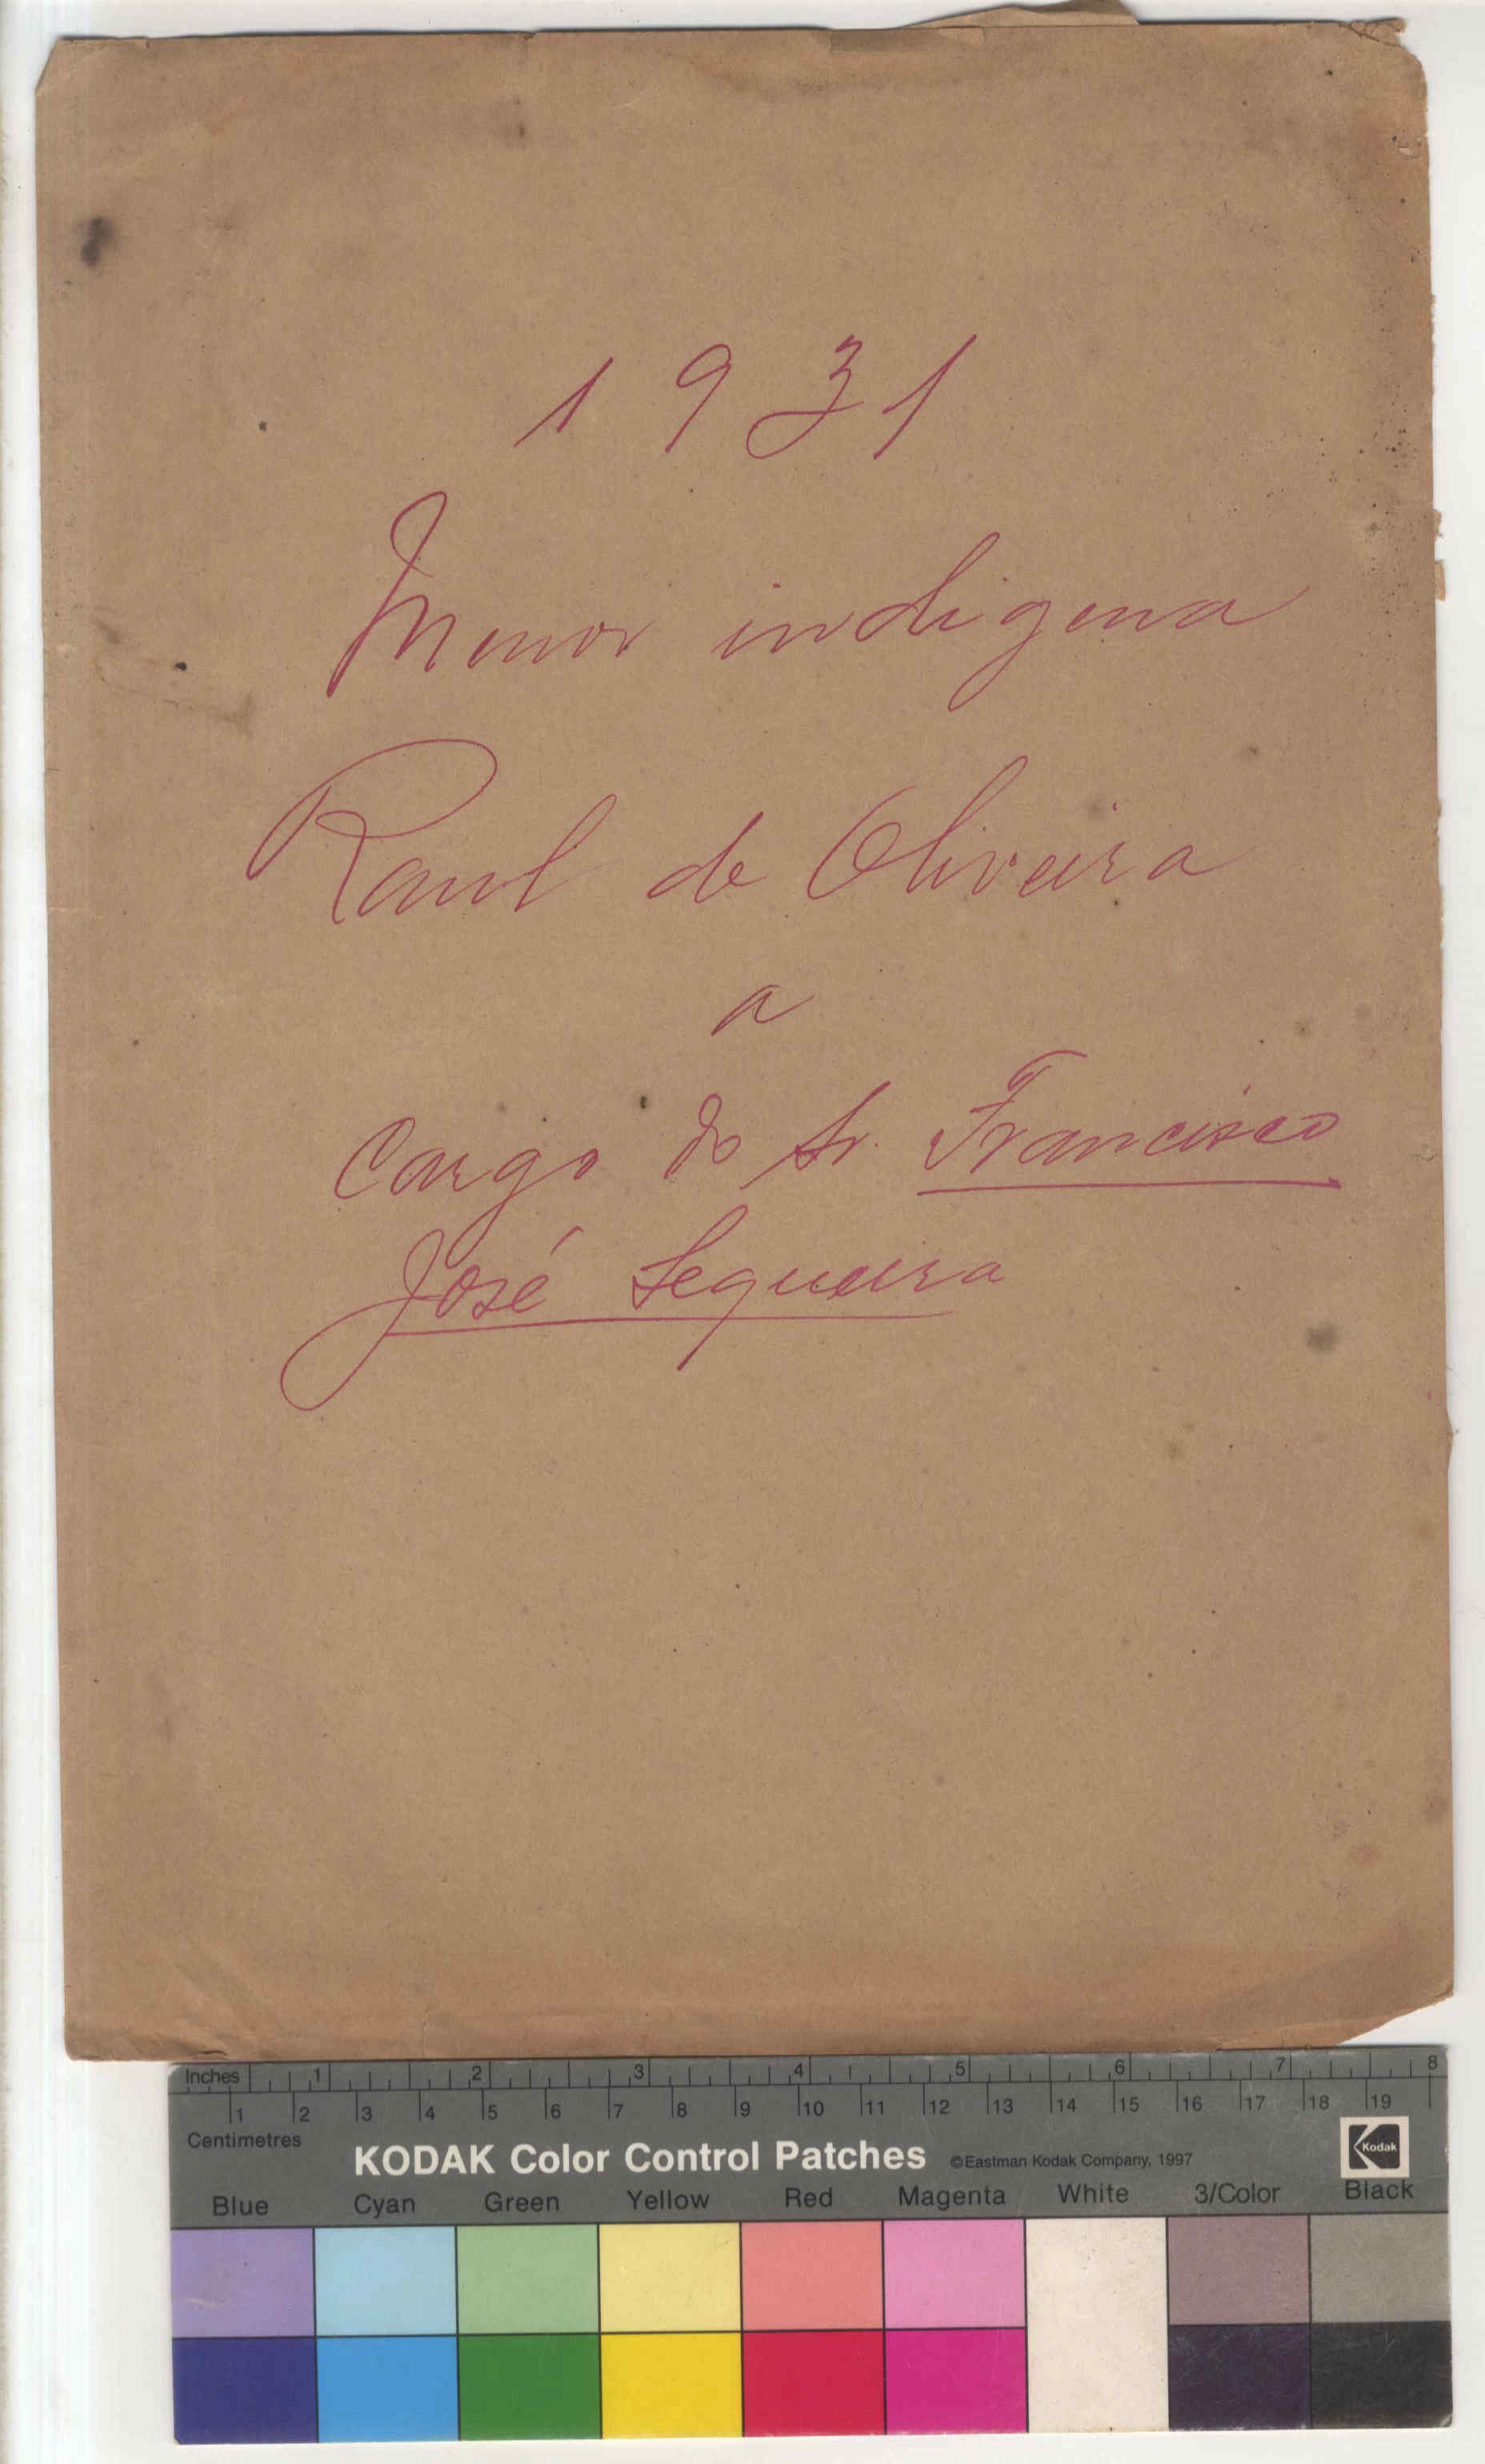 1931
Menor indigena
Raul de Oliveira
a
Cargo do Sr. Francisco
José Sequeira
Inches 1 2 3 4 5 6 7 8
1 2 3 4 5 6 7 8 9 10 11 12 13 14 15 16 17 18 19
Centimetres
KODAK Color Control Patches ©Eastman Kodak Company, 1997 Kodak
Blue Cyan Green Yellow Red Magenta White 3/Color Black